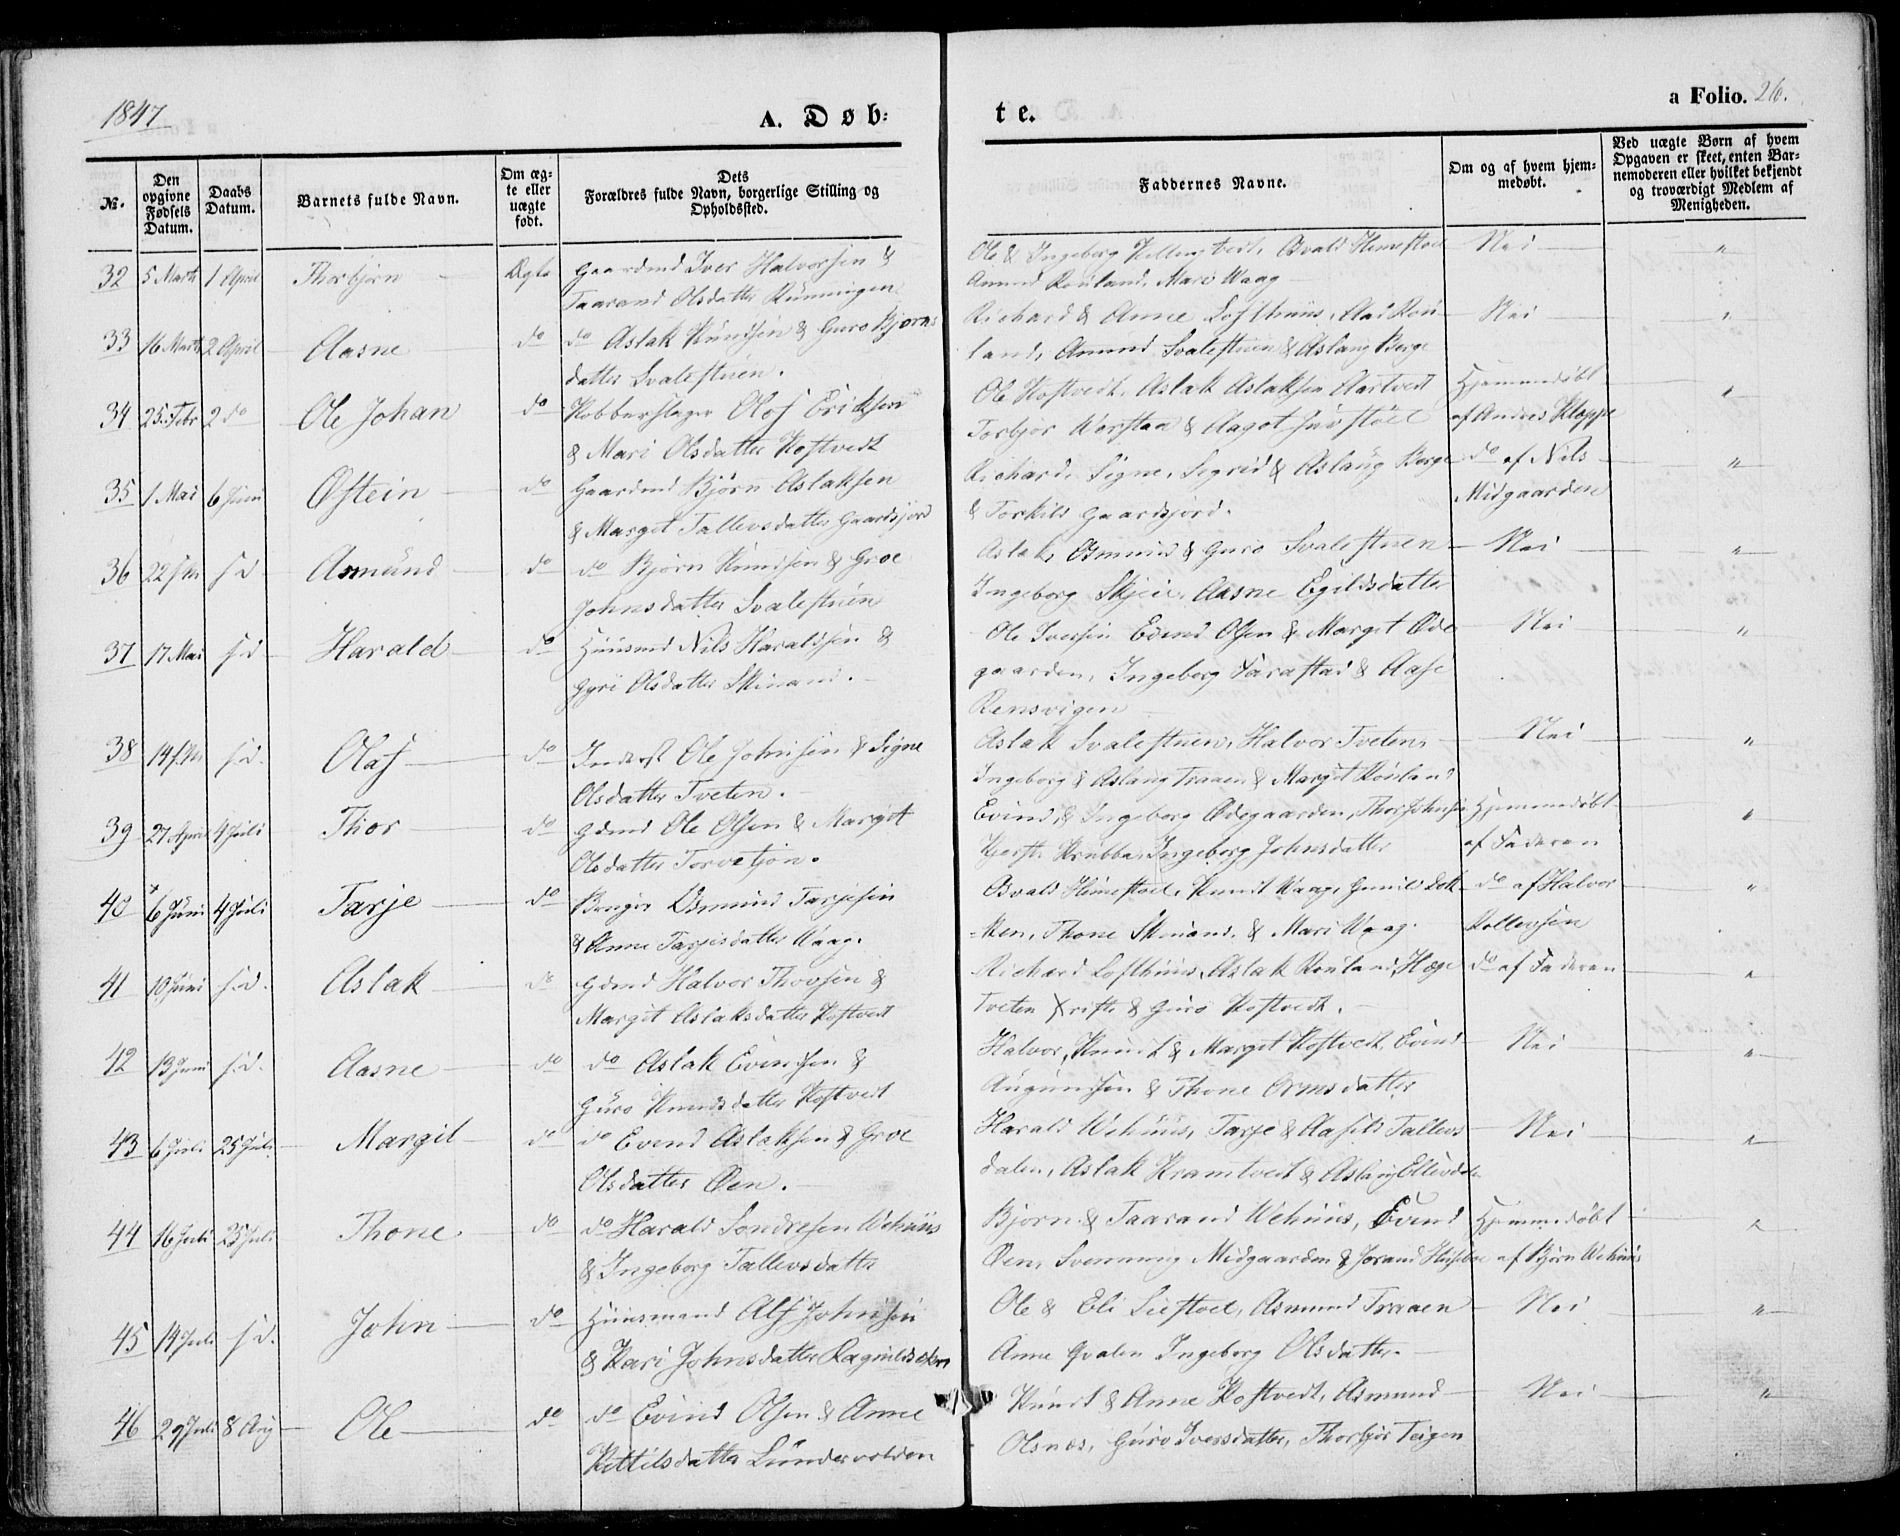 1847
A. Døb:
te.
a Folio. 26.
No.
Den opgivne Fødsels Datum.
Daabs Datum.
Barnets fulde Navn.
Om ægte eller uægte født.
Dets Forældres fulde Navn, borgerlige Stilling og Opholdssted.
Faddernes Navne.
Om og af hvem hjemmedøbt.
Ved uægte Børn af hvem Opgaven er skeet, enten Barnemoderen eller hvilket bekjendt og troværdigt Medlem af Menigheden.
32 5 Marts 1 April Thorbjørn Ægte Gaardmd Iver Halvorsen &
Taarand Olsdatter
Ole & Ingeborg Amund Rouland, Mari Waag Nei "
33 16 Marts 2 April Aasne do do Aslak Knudsen & Guro Bjørns
datter Svalestuen.
Richard & Anne Lofthuus, Rou
land, Amund Svalestuen & Aslaug Berge Nei "
34 25 Febr 2 do Ole Johan do Kobberslager Olof Eriksen
& Mari Olsdatter Kostvedt
Ole Kostvedt, Aslak Aslaksen
Torbjør & Aagot Hjemmedøbt
af Anders Kloppe "
35 1 Mai 6 Juni Østein do Gaardmd Bjørn Aslaksen
& Marget Tallevsdatter Gaardsjord
Richard, Signe, Sigrid & Aslaug Berge
& Torkild Gaardsjord. do af Nils
Midgaarden "
36 22 s.d. Asmund do do Bjørn Knudsen & Groe
Johnsdatter Svalestuen
Aslak, Osmund & Guro Svalestuen
Ingeborg Skjeie, Aasne Egilsdatter Nei "
37 17 Mai s.d Harald do Huusmd Nils Haraldsen &
Gyri Olsdatter Skinand.
Ole Iversen Evend Olsen & Marget Øde
gaarden, Ingeborg & Aase
Rensvigen Nei "
38 14 s.d. Olaf do Inderst Ole Johnsen & Signe
Olsdatter Tveten.
Aslak Svalestuen, Halvor Tveten,
Ingeborg & Aslaug Traaen & Margit Rouland Nei "
39 27 April 4 Juli Thor do Gdmd Ole Olsen & Margit
Olsdatter Torvetjøn.
Evind & Ingeborg Ødegaarden, Thor Johnsen
Ingeborg Johnsdatter Hjemmedøbt
af Faderen "
40 6 Juni 4 Juli Tarje do Osmund Tarjesen
& Anne Tarjesdatter Waag.
Osvald Knudt Waag,
Thone Skinand & Mari Waag. do af Halvor
Rollevsen "
41 10 Juni s.d. Aslak do Gdmd Halvor Thovsen &
Margit Aslaksdatter Kostvedt
Richard Lofthuus, Aslak Rouland, Hæge
Tveten & Guro Kostvedt. do af Faderen "
42 13 Juni s.d. Aasne do do Aslak Evindsen &
Guro Knudsdatter Kostvedt
Halvor, Knudt & Marget Kostvedt, Evind
Augundsen & Thone Ormsdatter Nei "
43 6 Juli 25 Juli Margit do do Evend Aslaksen & Groe
Olsdatter Øen.
Harald Wehuus, Tarje & Aasild Tallevs
dalen, Aslak Kramtvedt & Aslaug Nei "
44 16 Juli 25 Juli Thone do do Harald Sondresen Wehuus
& Ingeborg Tallevsdatter
Bjørn & Taarand Wehuus, Evend
Øen, Svenning Midgaarden & Jorand Hjemmedøbt
af Bjørn Wehuus "
45 14 Juli s.d. John do Huusmand Alf Johnsen
& Kari Johnsdatter
Ole & Eli Asmund Traaen
Anne Qvalen Ingeborg Olsdatter. Nei "
46 29 Juli 8 Aug Ole do do Evind Olsen & Anne
Kittilsdatter
Knudt & Anne Kostvedt, Asmund
Olsnæs, Guro Iversdatter, Thorbjør Teigen Nei "